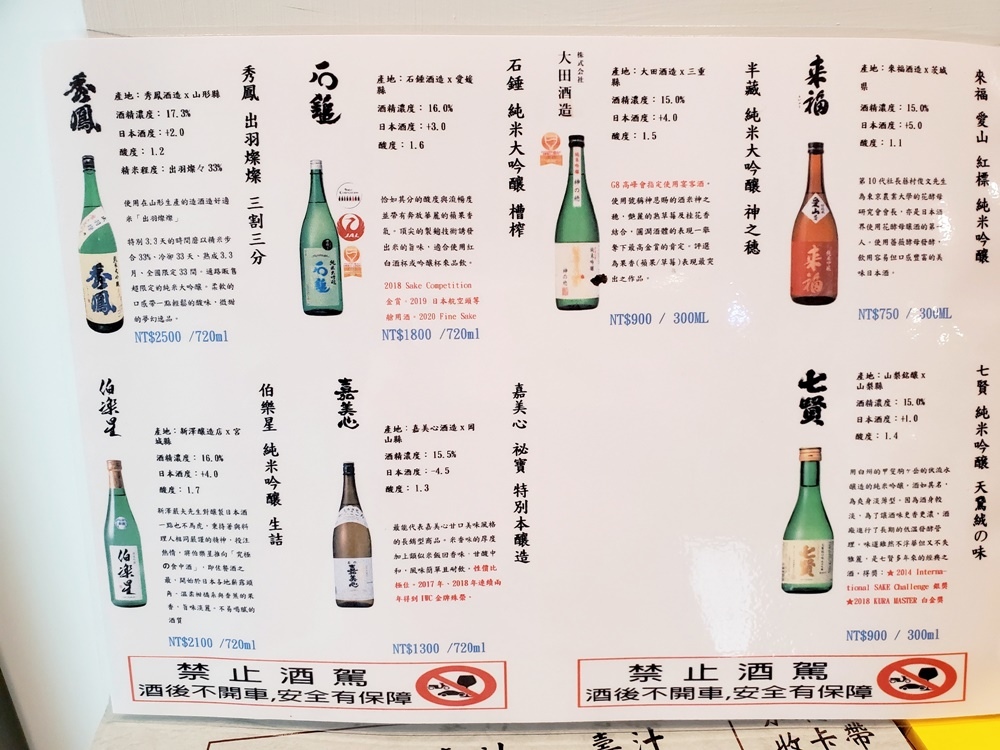 秀鳳
產地：秀鳳酒造 x 山形縣
酒精濃度：17.3%
日本酒度：+2.0
酸度：1.2
精米程度：出羽燦々 33%
使用在山形生產的造酒造好適
米「出羽燦燦」
特別 3.3 天的時間磨以精米步
合 33%、冷卻 33 天、熟成 3.3
月。全國限定 33 間，通路販售
超限定的純米大吟釀。柔軟的
口感帶一點輕鬆的酸味，微甜
的夢幻逸品。
NT$2500 /720ml
秀鳳 出羽燦燦 三割三分
石鎚
產地：石鎚酒造 x 愛媛
縣
酒精濃度：16.0%
日本酒度：+3.0
酸度：1.6
恰如其分的酸度與流暢度
並帶有奔放華麗的蘋果香
氣。頂尖的製麴技術誘發
出米的旨味。適合使用紅
白酒杯或吟釀杯來品飲。
2018 Sake Competition
金賞、2019 日本航空頭等
艙用酒、2020 Fine Sake
NT$1800 /720ml
JAL
石鎚 純米大吟釀 槽榨
株式会社
大田酒造
產地：大田酒造 x 三重
縣
酒精濃度：15.0%
日本酒度：+4.0
酸度：1.5
G8 高峰會指定使用宴客酒。
使用號稱神恩賜的酒米神之
穗，艷麗的熟草莓及桂花香
結合，圓潤酒體的表現一舉
拿下最高金賞的肯定。評選
為果香(蘋果/草莓)表現最突
出之作品。
NT$900 / 300ML
神の穂
半藏 純米大吟釀 神之穗
来福
產地：來福酒造 x 茨城
縣
酒精濃度：15.0%
日本酒度：+5.0
酸度：1.1
第 10 代社長藤村俊文先生
為東京農業大學的花酵母
研究會會長，亦是日本酒
界使用花酵母釀酒的第一
人。使用薔薇酵母發酵，
飲用容易但口感豐富的美
味日本酒。
NT$750 / 300ML
愛山
来福
來福 愛山 紅標 純米吟釀
伯楽星
產地：新澤釀造店 x 宮
城縣
酒精濃度：16.0%
日本酒度：+4.0
酸度：1.7
新澤嚴夫先生對釀製日本酒
一點也不馬虎，秉持著與料
理人相同嚴謹的精神，投注
熱情。將伯樂星推向「究極
の食中酒」，即佐餐酒之
最。開始於日本各地嶄露頭
角。溫柔柑橘系與香蕉的果
香，旨味淡麗，不易喝膩的
酒質
NT$2100 /720ml
伯楽星
伯樂星 純米吟釀 生詰
嘉美心
產地：嘉美心酒造 x 岡
山縣
酒精濃度：15.5%
日本酒度：-4.5
酸度：1.3
最能代表嘉美心甘口美味風格
的長銷型商品。米香味的厚度
加上類似米飯回香味，甘酸中
和，風味簡單且耐飲。性價比
極佳。2017 年、2018 年連續兩
年得到 IWC 金牌殊榮。
NT$1300 /720ml
嘉美心
嘉美心 祕寶 特別本釀造
七賢
產地：山梨銘釀 x
山梨縣
酒精濃度：15.0%
日本酒度：+1.0
酸度：1.4
用白州的甲斐駒ヶ岳的伏流水
釀造的純米吟釀，酒如其名，
為爽身淡薄型。因為酒身較
淡，為了讓酒味更香更濃，酒
廠進行了長期的低溫發酵管
理。味道雖然不浮華但又不失
雅麗，是七賢多年來的經典之
酒。得獎：★2014 Interna-
tional SAKE Challenge 銀獎
★2018 KURA MASTER 白金獎
NT$900 / 300ml
七賢
七賢 純米吟釀 天鵞絨の味
禁止酒駕
酒後不開車,安全有保障
禁止酒駕
酒後不開車,安全有保障
收卡帶